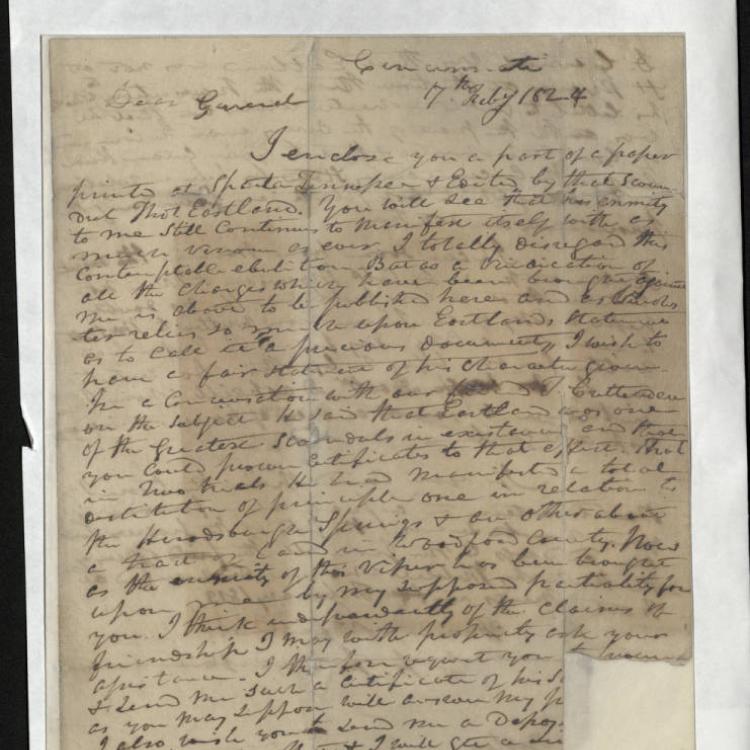 Cincinnati
7th Feby 1824
Dear General
I enclose you a part of a paper
printed at Sparta Tennessee & Edited by that Scoun-
drel Thos Eastland. You will see that his enmity
to me still Continues to manifest itself with as
much venom as ever. I totally disregard this
Contemptable ebulition But as a vindication of
all the Charges which have been brought against
me is about to be published here and as
relies so much upon Eastlands Statement
as to Call it "a precious document" I wish to
have a fair statement of his Character given.
In a Conversation with our friend J Crittenden
on the subject he said that Eastland was one
of the Greatest Scoundrels in existence and that
you could procure Certificates to that effect. That
in Two trials he had manifested a total
destitution of principle one in relation to
the Harrodsburgh Springs & an other about
a tract of Land in Woodford County. Now
as the enmity of this Viper has been brought
upon me by my supposed partiality for
you. I think independantly of the Claims of
friendship I may with propriety ask your
assistance. I therefore request you to
& send me such a Certificate of his
as you may suppose will answer my
I also wish you to send me a Depo
& I will get a